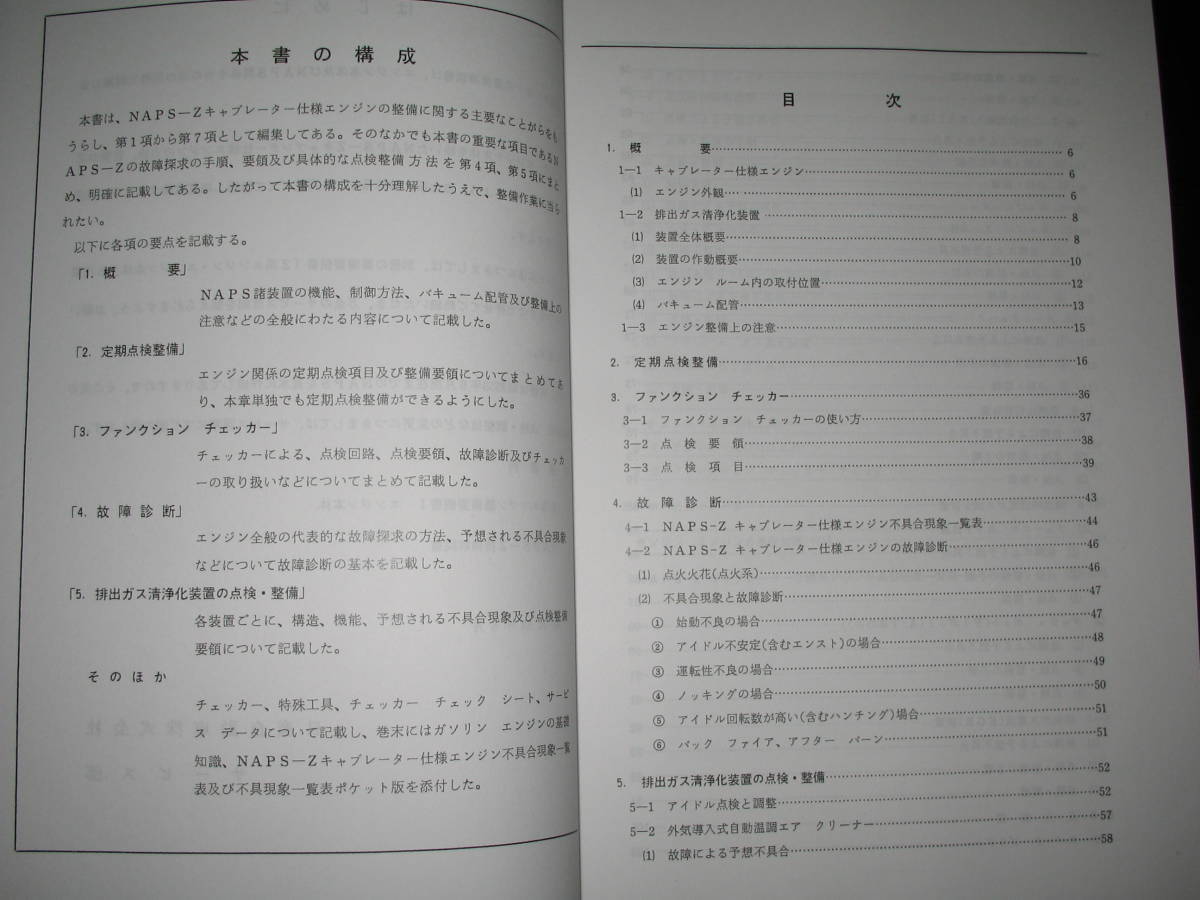 本書の構成
本書は、NAPS―Zキャブレーター仕様エンジンの整備に関する主要なことがらをも
うらし、第1項から第7項として編集してある。そのなかでも本書の重要な項目であるN
APS―Zの故障探求の手順、要領及び具体的な点検整備方法を第4項、第5項にまと
め、明確に記載してある。したがって本書の構成を十分理解したうえで、整備作業に当ら
れたい。
以下に各項の要点を記載する。
「1. 概　　要」
NAPS諸装置の機能、制御方法、バキューム配管及び整備上の
注意などの全般にわたる内容について記載した。
「2. 定期点検整備」
エンジン関係の定期点検項目及び整備要領についてまとめてあ
り、本章単独でも定期点検整備ができるようにした。
「3. ファンクション　チェッカー」
チェッカーによる、点検回路、点検要領、故障診断及びチェッカ
ーの取り扱いなどについてまとめて記載した。
「4. 故障診断」
エンジン全般の代表的な故障探求の方法、予想される不具合現象
などについて故障診断の基本を記載した。
「5. 排出ガス清浄化装置の点検・整備」
各装置ごとに、構造、機能、予想される不具合現象及び点検整備
要領について記載した。
そのほか
チェッカー、特殊工具、チェッカー　チェック　シート、サービ
ス　データについて記載し、巻末にはガソリン　エンジンの基礎
知識、NAPS―Zキャブレーター仕様エンジン不具合現象一覧
表及び不具現象一覧表ポケット版を添付した。
目　　次
1. 概　　要……………………6
1―1 キャブレーター仕様エンジン……………………6
(1) エンジン外観……………………6
1―2 排出ガス清浄化装置……………………8
(1) 装置全体概要……………………8
(2) 装置の作動概要……………………10
(3) エンジン　ルーム内の取付位置……………………12
(4) バキューム配管……………………13
1―3 エンジン整備上の注意……………………15
2. 定期点検整備……………………16
3. ファンクション　チェッカー……………………36
3―1 ファンクション　チェッカーの使い方……………………37
3―2 点検要領……………………38
3―3 点検項目……………………39
4. 故障診断……………………43
4―1 NAPS-Z キャブレーター仕様エンジン不具合現象一覧表……………………44
4―2 NAPS-Z キャブレーター仕様エンジンの故障診断……………………46
(1) 点火火花(点火系)……………………46
(2) 不具合現象と故障診断……………………47
① 始動不良の場合……………………47
② アイドル不安定(含むエンスト)の場合……………………48
③ 運転性不良の場合……………………49
④ ノッキングの場合……………………50
⑤ アイドル回転数が高い(含むハンチング)場合……………………51
⑥ バック　ファイア、アフター　バーン……………………51
5. 排出ガス清浄化装置の点検・整備……………………52
5―1 アイドル点検と調整……………………52
5―2 外気導入式自動温調エア　クリーナー……………………57
(1) 故障による予想不具合……………………58